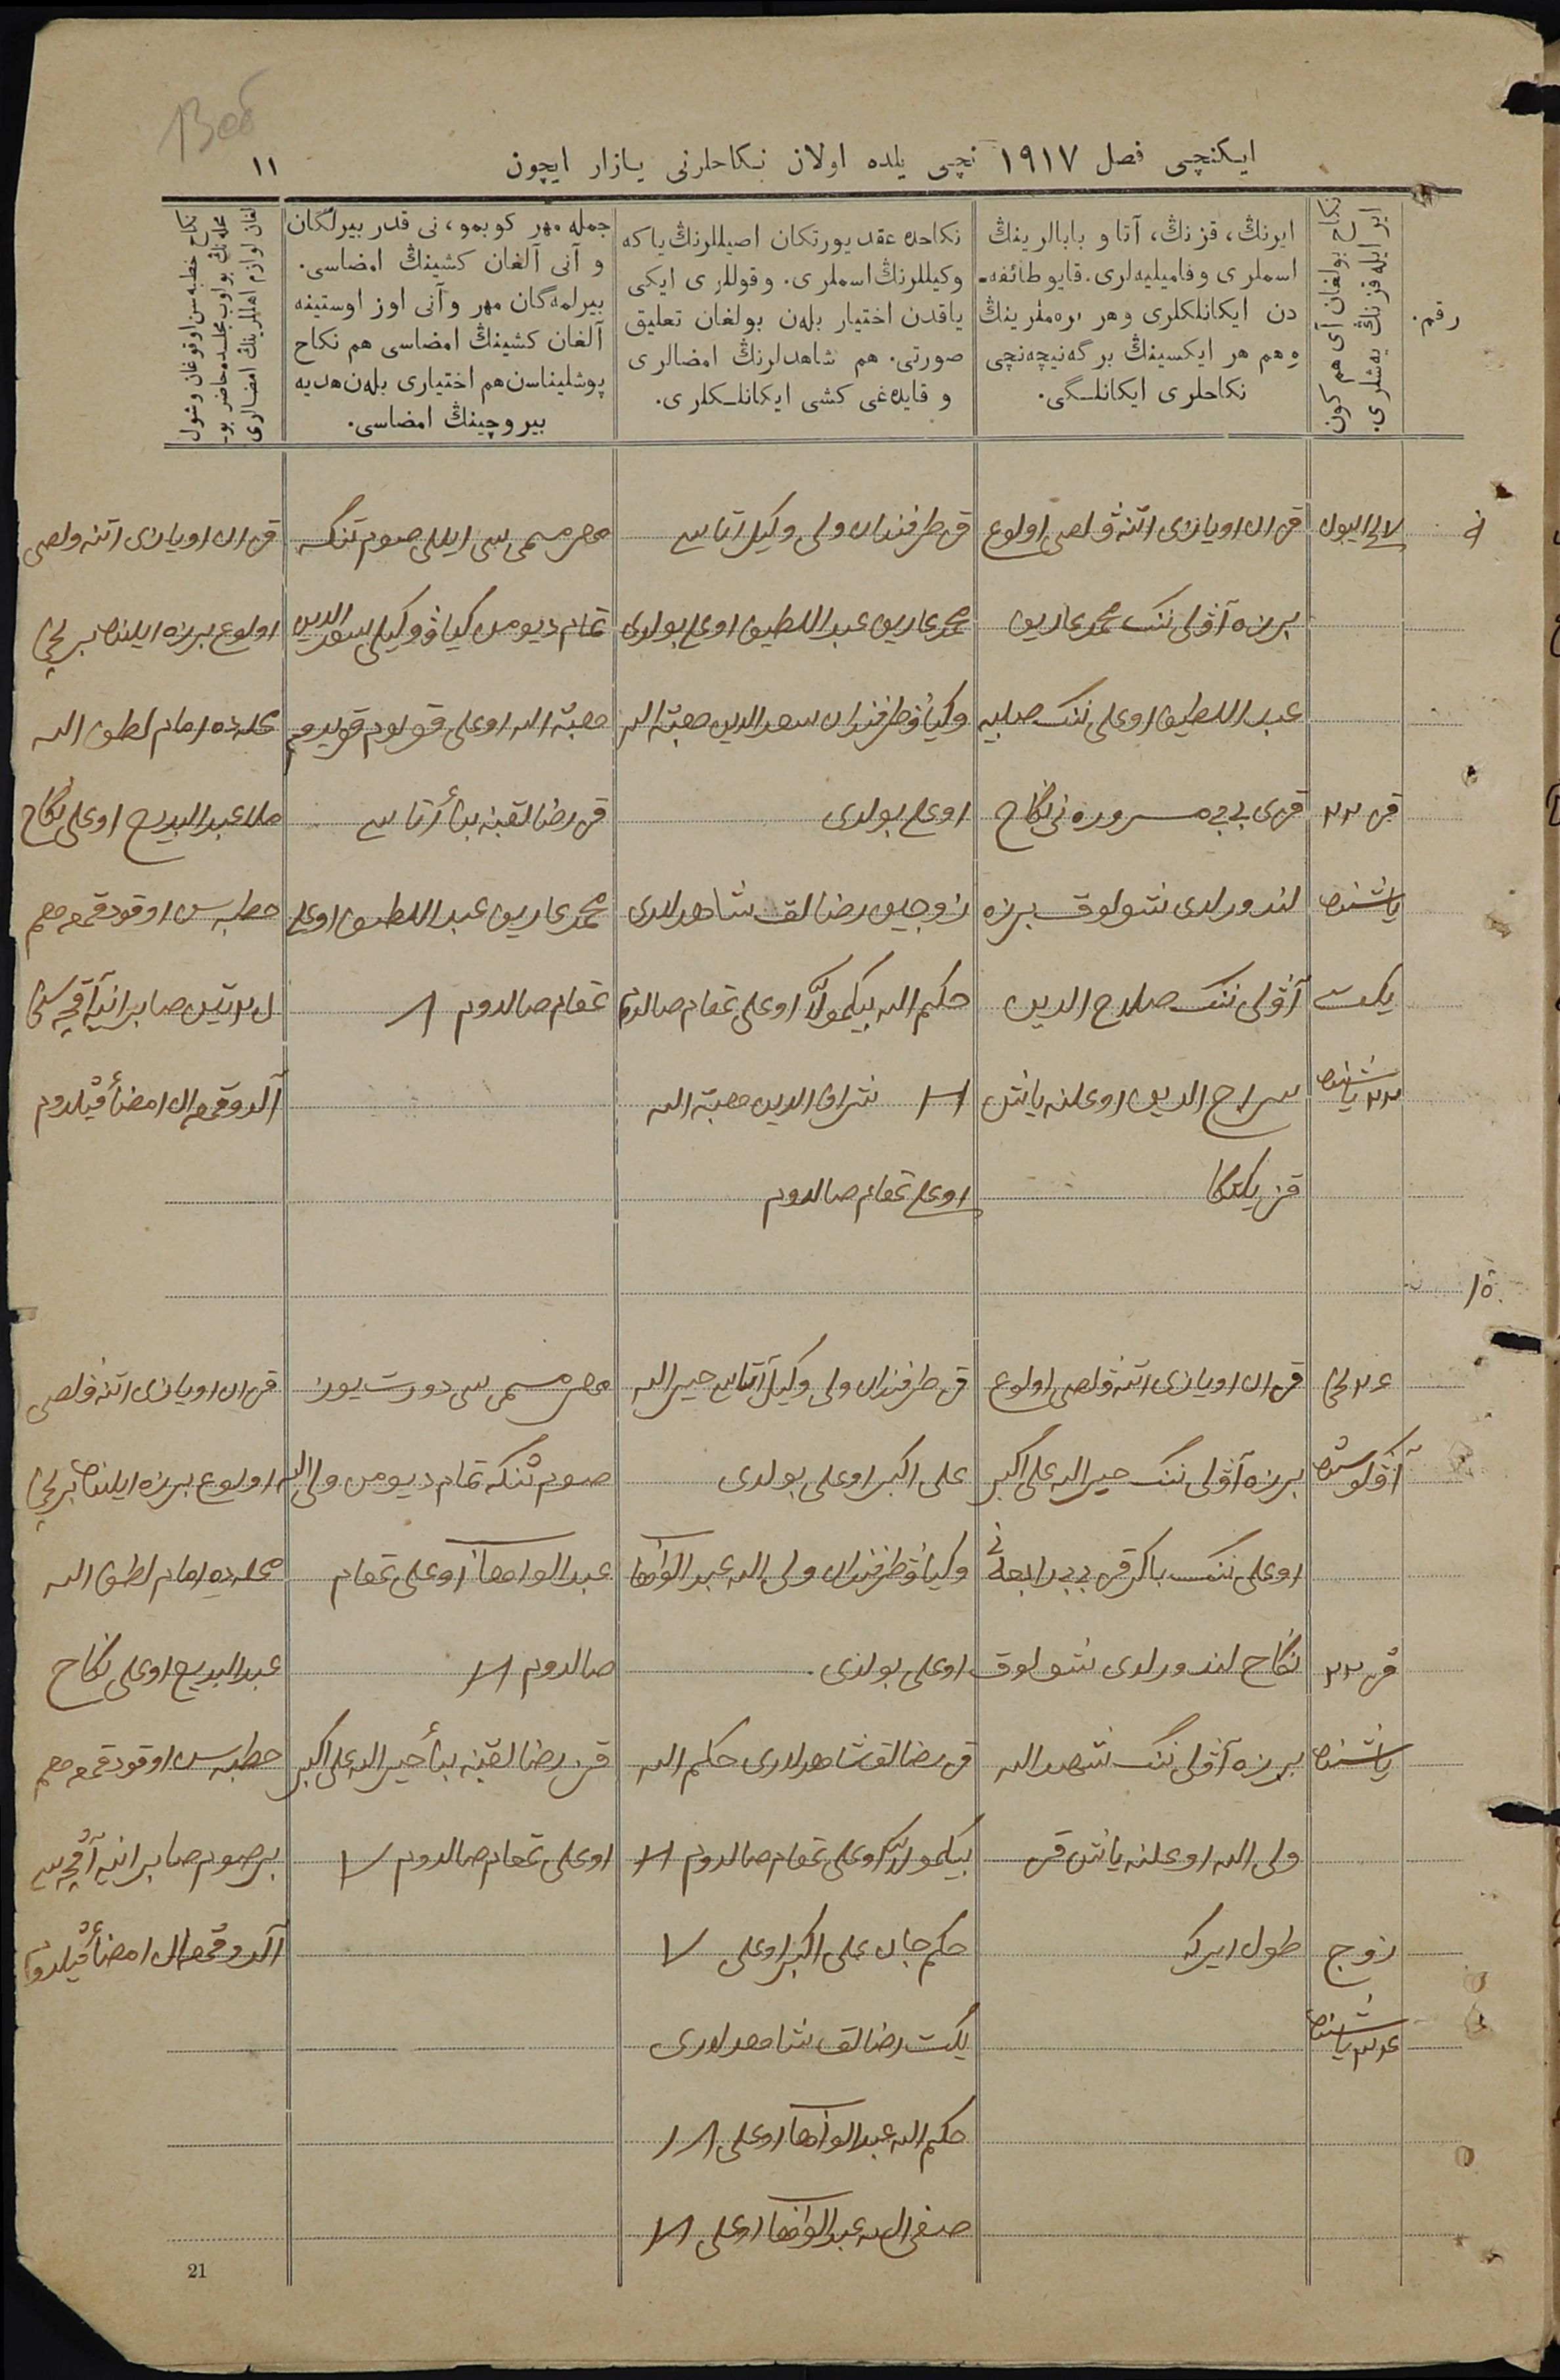 ایکنچی فصل ۱۹۱۷ نچی یلده اولان نکاحلرنی یازار ایچون
۱۱
رقم.
نکاح بولغان آی هم کون
ایر ایله قزنڭ یه‌شلری.
ایرنڭ، قزنڭ، آتا و بابالرینڭ
اسملری و فامیلیه‌لری. قایو طائفه‌-
دن ایکانلکلری وهر
هم هر ایکسینڭ برگه‌نیچه‌نچی
نکاحلری ایکانلـگی.
نکاحده عقد یورتکان اصیللرنڭ یا که
وکیللرنڭ اسملری. و قوللری ایکی
یاقدن اختیار بله‌ن بولغان تعلیق
صورتی. هم شاهدلرنڭ امضالری
و قایده‌غی کشی ایکانلـکلری.
جمله مهر کوبمو، نی قدر بیرلگان
و آنی آلغان کشینڭ امضاسی.
بیرلمه‌گان مهر و آنی اوز اوستینه
آلغان کشینڭ امضاسی هم نکاح
پوشلیناسن هم اختیاری بله‌ن هدیه
بیروچینڭ امضاسی.
نکاح خطبه‌سن اوقوغان وشول
محله‌نڭ بولوب مجلسده حاضر بو-
لغان لوازم اهللرینڭ امضالری
قزان اویازی اتنه ولصی اولوع
برزه آولی ننک محمدعاریف
عبداللطیف اوعلی ننک
قزی بی بی مسروره نی نکاح
لندورلدی شولوق برزه
آولی ننک صلاح الدین
سراج الدین اوعلنه یاش
قز یکتکا
قز ۲۲
یاشنده
یکت
۲۲ یاشنده
قز طرفندان ولی وکیل آتاسی
محمدعاریف عبداللطیف اوعلی بولدی
وکیاو طرفندان سعدالدین هبة الله
اوعلی بولدی
زوجین رضالق شاهدلری
حکم الله بیکمولّا اوعلی تمغام صالدم
شراف الدین هبة الله
اوعلی تمغام صالدوم
مهر مسمی سی ایللی صوم تنکه
تمام دیومن کیاو وکیلی سعدالدین
هبة الله اوعلی قولوم قویدوم
قز رضالقینه بناءً آتاسی
محمدعاریف عبداللطیف اوعلی
تمغام صالدوم
قزان اویازی اتنه ولصی
اولوع برزه ایلینده برلچی
محله‌ده امام لطف الله
ملا عبدالبدیع اوعلی نکاح
خطبه‌سن اوقودقمده هم
آلدوقمدان امضاء قیلدوم
۱۵
قزان اویازی اتنه ولصی اولوع
برزه آولی ننک خیرالله علی اکبر
اوعلی ننک باکر قز بی بی رابعه نی
نکاح لندورلدی شولوق
برزه آولی ننک
ولی الله اوعلنه یاش قز
طول ایرکه
قز ۲۲
یاشنده
زوج
قز طرفندان ولی وکیل آتاسی خیرالله
علی اکبر اوعلی بولدی
وکیاو طرفندان ولی الله عبدالوهاب
اوعلی بولدی.
قز رضالق شاهدلری حکم الله
بیکمولّا اوعلی تمغام صالدوم
حکم جان علی اکبر اوعلی
یکت رضالق شاهدلری
حکم الله عبدالوهاب اوعلی
صفی الله عبدالوهاب اوعلی
مهر مسمی سی دورت یوز
صوم تنکه تمام دیومن ولی الله
عبدالوهاب اوعلی تمغام
صالدوم
قز رضالقینه بناءً خیرالله علی اکبر
اوعلی تمغام صالدوم
قزان اویازی اتنه ولصی
اولوع برزه ایلینده برلچی
محله‌ده امام لطف الله
عبدالبدیع اوعلی نکاح
خطبه‌سن اوقودقمده هم
بر صوم صابرانیه آقچه‌سی
آلدوقمدان امضاء قیلدوم
21